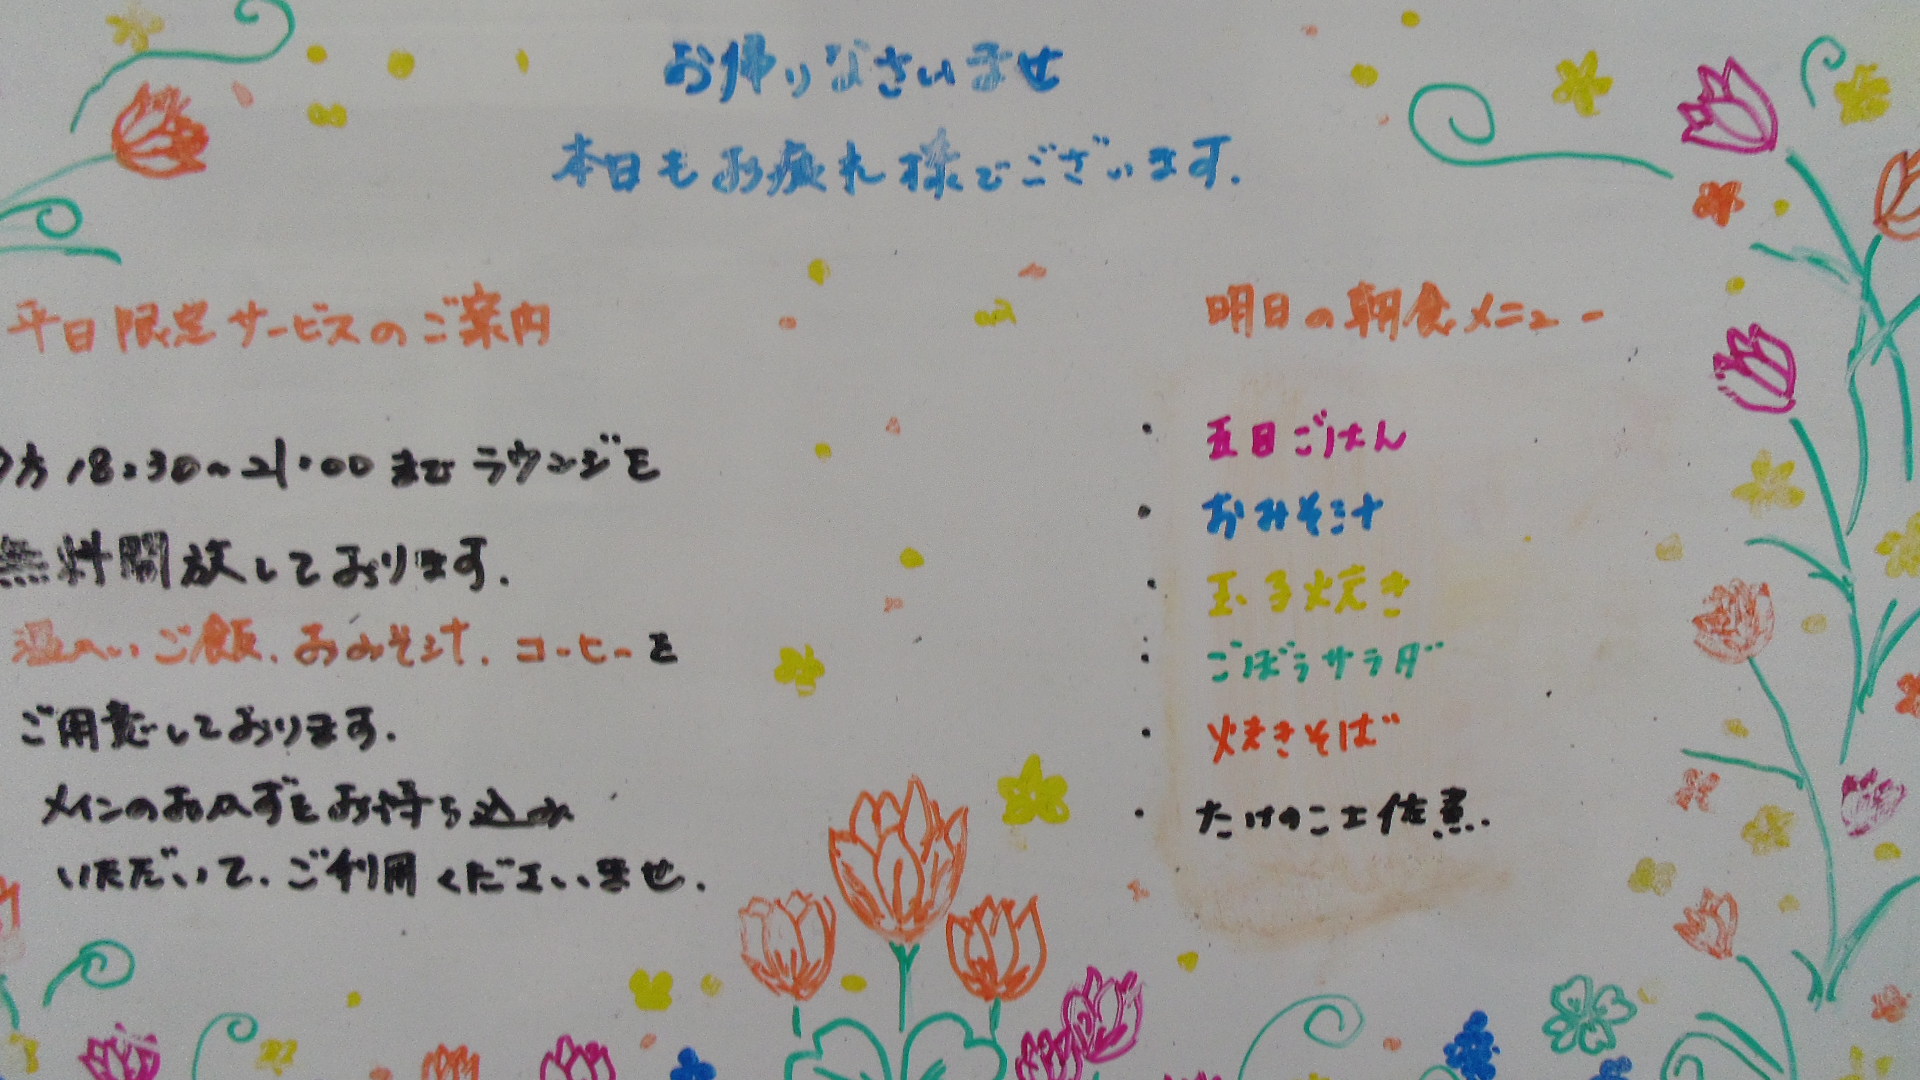 お帰りなさいませ
本日もお疲れ様でございます.
平日限定サービスのご案内
夕方18:30~21:00までラウンジを
無料開放しております.
温かいご飯、おみそ汁、コーヒーを
ご用意しております.
メインのおかずをお持ち込み
いただいて、ご利用くださいませ.
明日の朝食メニュー
・五目ごはん
・おみそ汁
・玉子焼き
・ごぼうサラダ
・焼きそば
・たけのこ土佐煮.